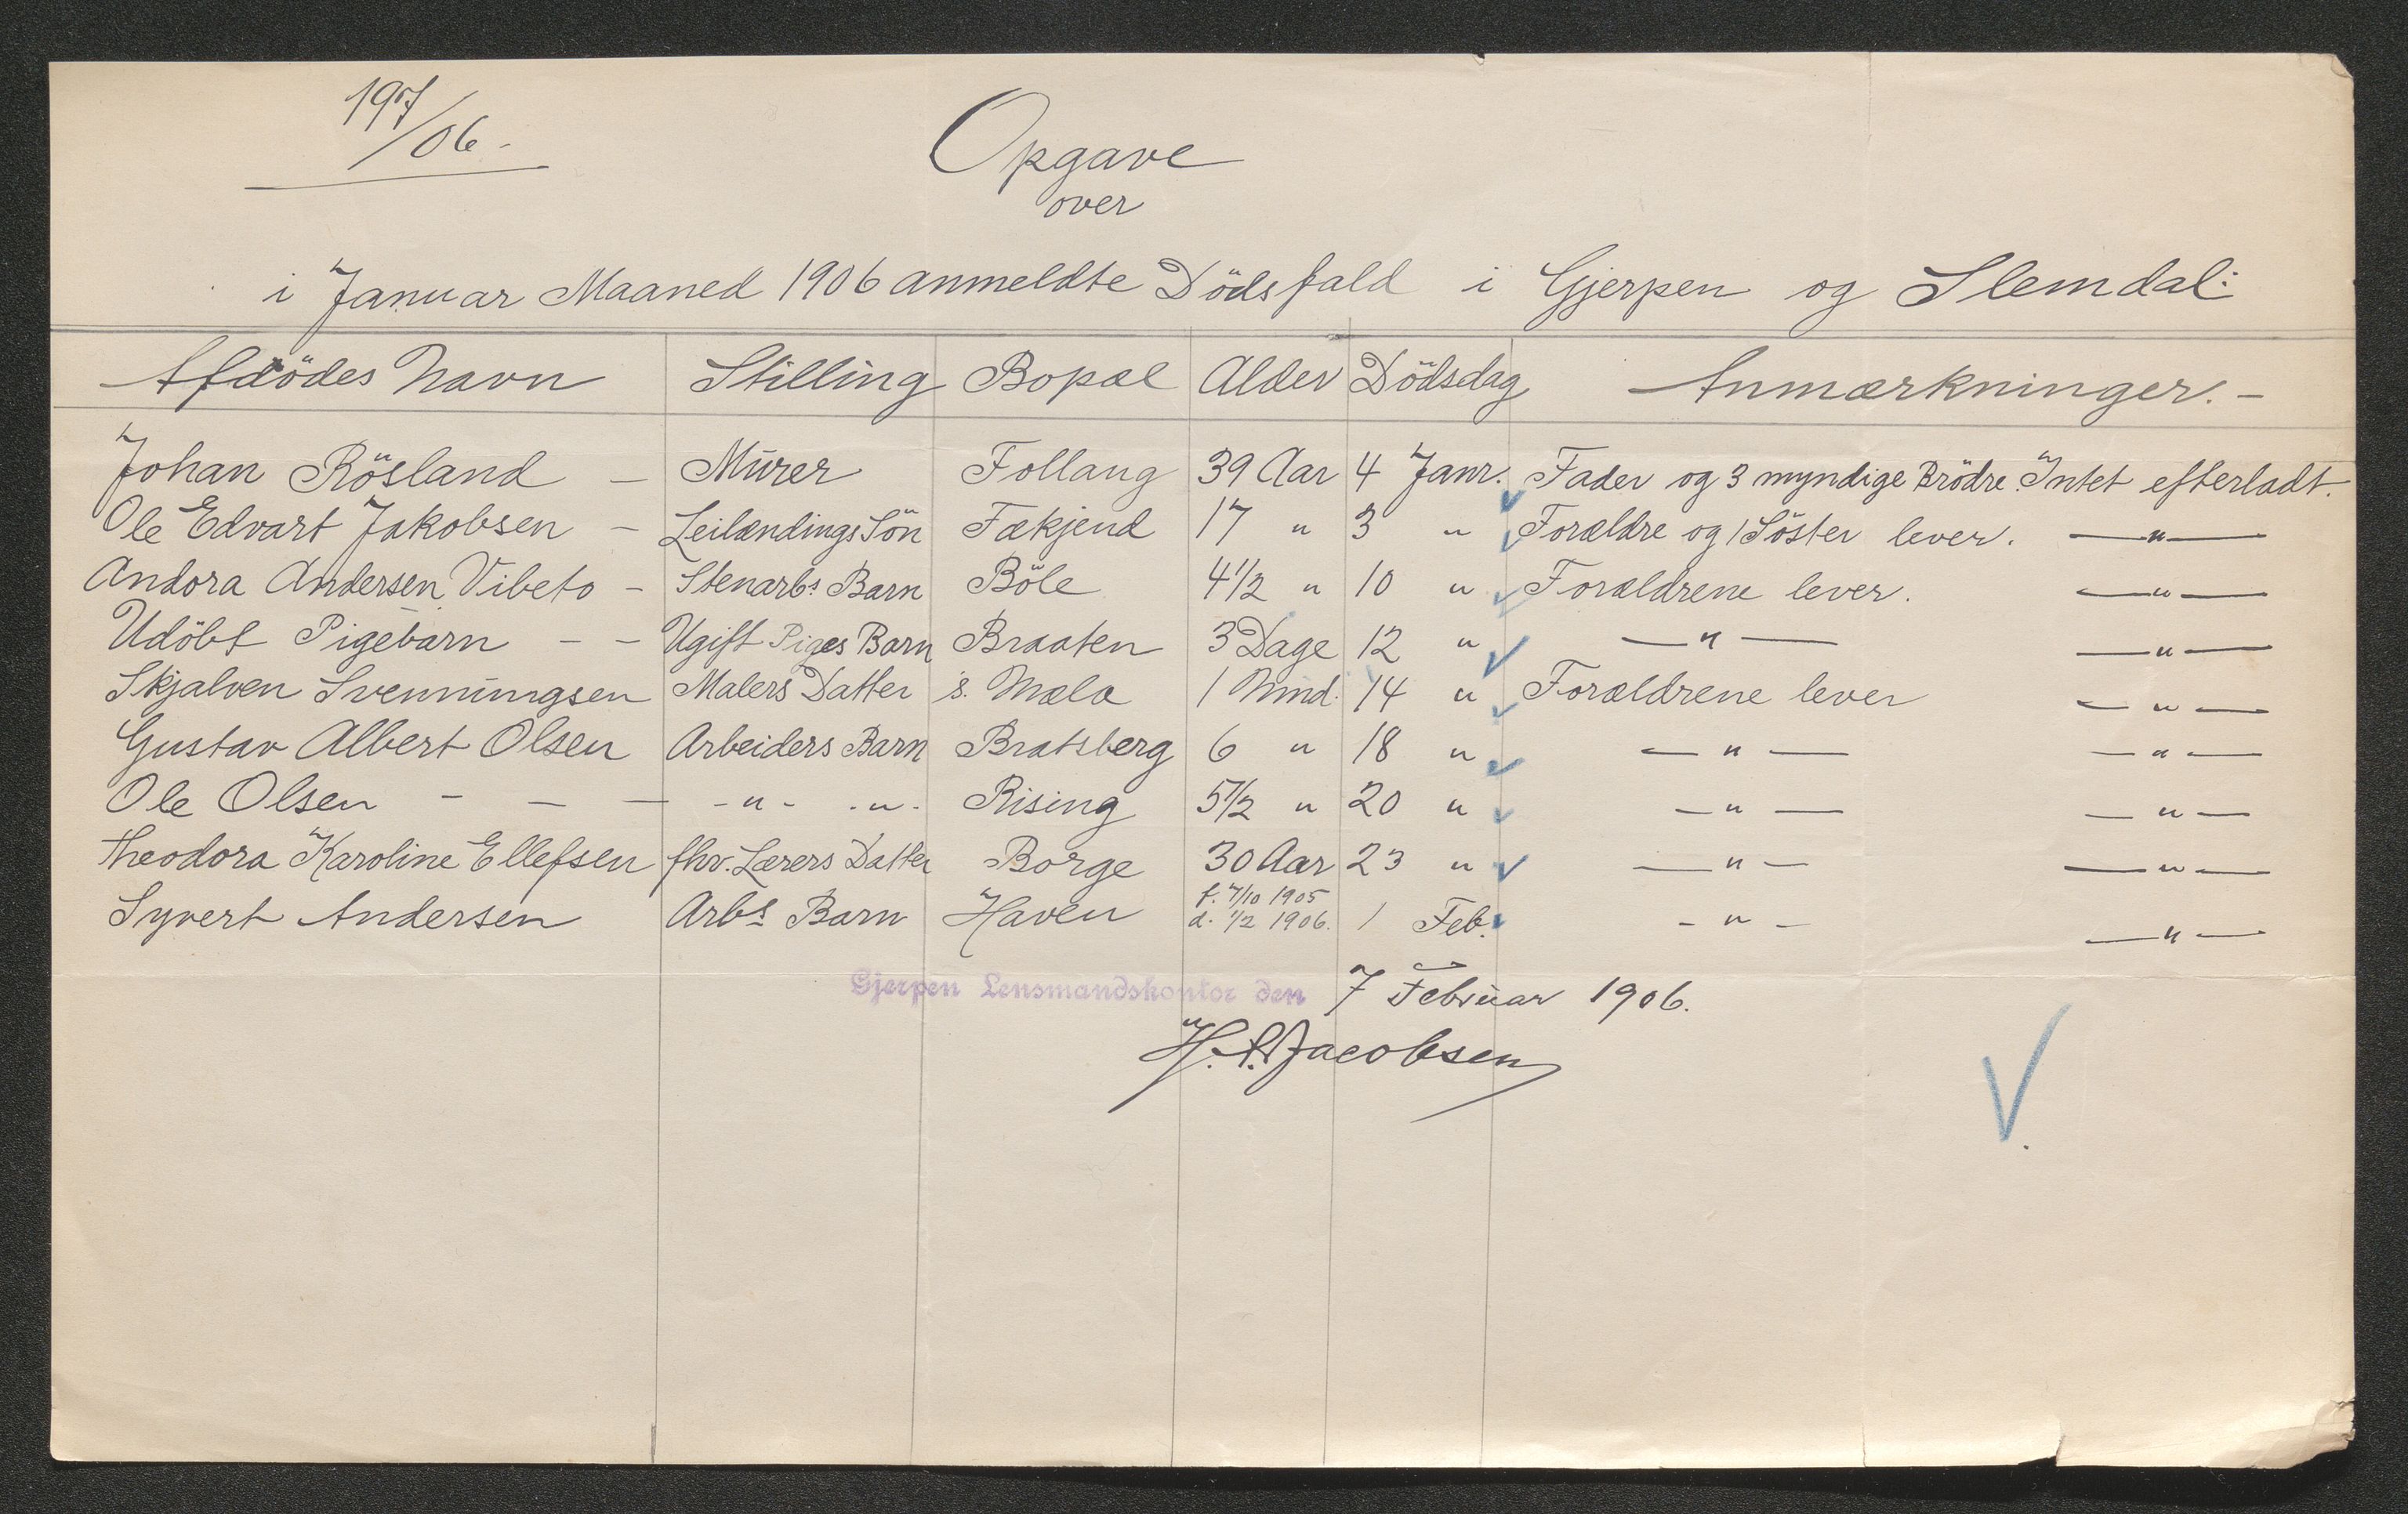 197/06.-
Opgave
over
i Januar Maaned 1906 anmeldte Dödsfald i Gjerpen og Slemdal:
Afdödes Navn Stilling Bopæl Alder Dödsdag Anmærkninger.-
Johan Rösland - Murer Follaug 39 Aar 4 Janr. Fader og 3 myndige Brödre. Intet efterladt.
Ole Edvart Jakobsen - Leilændings Sön Fækjend 17 " 3 " Forældre og 1 Söster lever. —"—
Andora Andersen Vibeto - Stenarbs Barn Böle 4 1/2 " 10 " Forældrene lever. —"—
Udöbt Pigebarn - - Ugift Piges Barn Braaten 3 Dage 12 " —"— —"—
Skjalven Svenningsen Malers Datter s. Mæla 1 Mnd. 14 " Forældrene lever —"—
Gustav Albert Olsen Arbeiders Barn Bratsberg 6 " 18 " —"— —"—
Ole Olsen - - - -"- -"- Rising 5 1/2 " 20 " —"— —"—
Theodora Karoline Ellefsen fhv. Lærers Datter Borge 30 Aar 23 " —"— —"—
Syvert Andersen Arbs Barn Haven f. 7/10 1905 d. 1/2 1906. 1 Feb. -"- —"—
Gjerpen Lensmandskontor den 7 Februar 1906.
H. P. Jacobsen